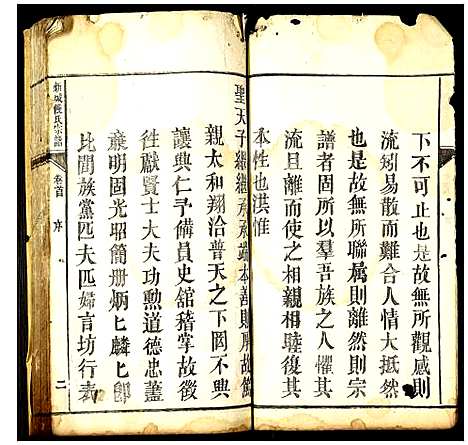 下不可止也是故無所觀感則
流矧易散而難合人情大抵然
也是故無所聯属則離然則宗
譜者固所以羣吾族之人懼其
流且離而使之相親相睦復其
本性也洪惟
聖天子繼繼承承 本善則厚故
親太和翔洽普天之下罔不興
讓興仁予備員史舘稽掌故徵
徃獻賢士大夫功勲道德忠藎
襄明固光昭簡册炳匕麟匕即
比閭族黨匹夫匹婦言坊行表
氏宗譜
卷首
序
二